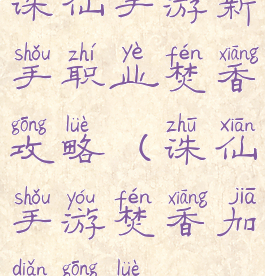 诛仙手游新
shǒu zhí yè fén xiāng
手职业焚香
gōng lüè zhū xiān
攻略（诛仙
shǒu yóu fén xiāng jiā
手游焚香加
diǎn gōng lüè